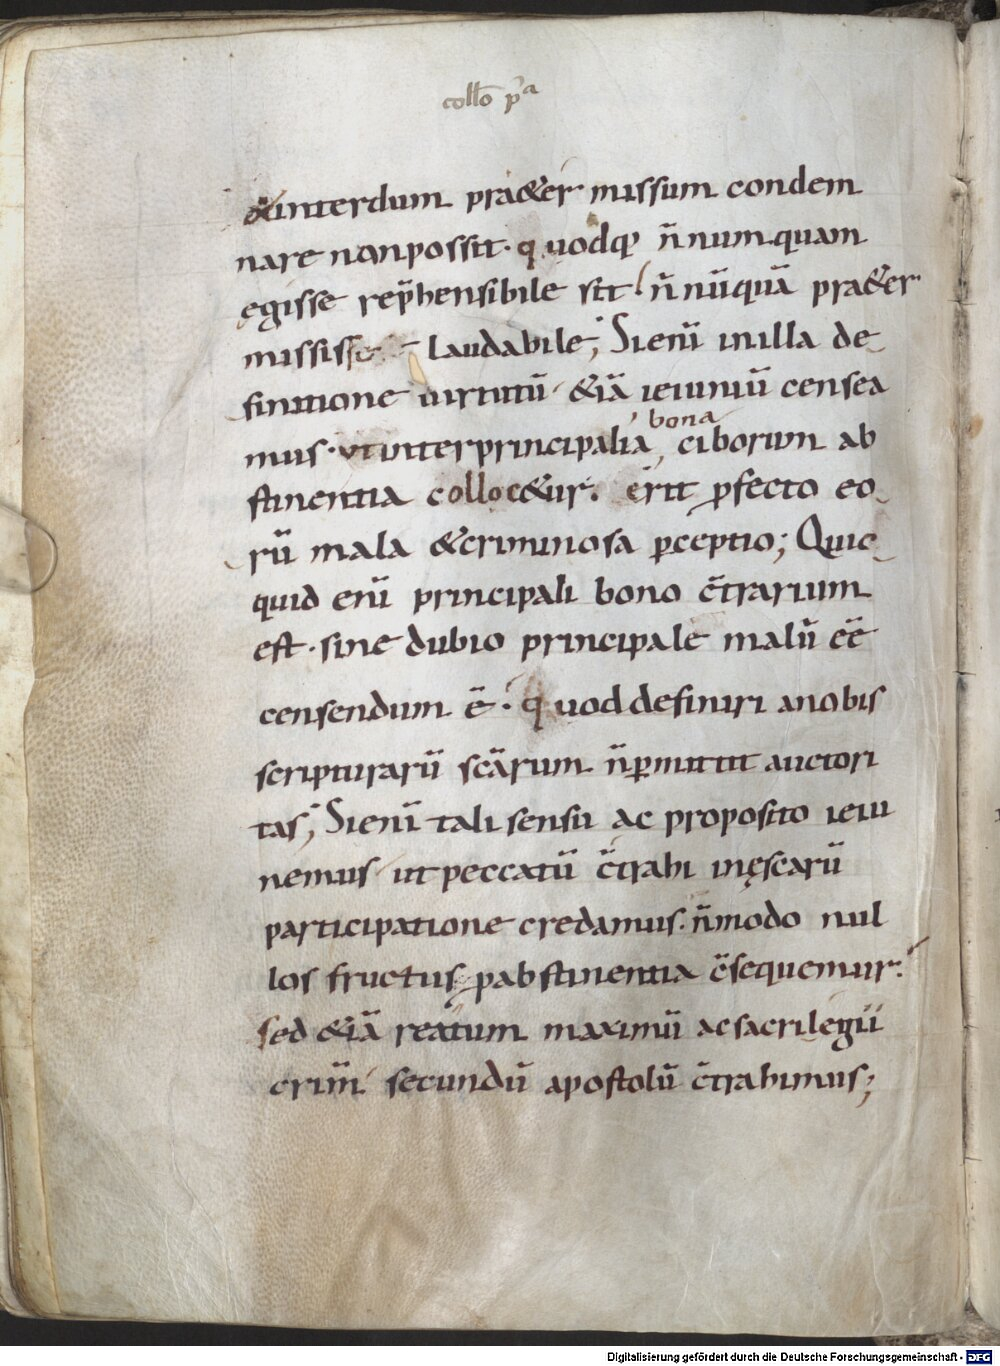 collo pa
&interdum pra&er missum condem
nare non possit· quodq; n̄ numquam
egisse rep̄hensibile sit· n̄ nūquā pra&er
misisse laudabile; Si enī in illa de
finitione uirtutū &iā ieiuniū censea
mus· ut inter principalia bona ciborum ab
stinentia colloc&ur· erit ꝓfecto eo
rū mala &criminosa ꝑceptio; Quic
quid enī principali bono c̄trarium
est· sine dubio principale malū eē
censendum ē· quod definiri a nobis
scripturarū scārum n̄ ꝑmittit auctori
tas; Si enī tali sensu ac proposito ieiu
nemus ut peccatū c̄trahi in ęscarū
participatione credamus· n̄ modo nul
los fructus ꝑ abstinentia c̄sequemur·
sed &iā reatum maximū ac sacrilegii
crim̄ secundū apostolū c̄trahimus;
Digitalisierung gefördert durch die Deutsche Forschungsgemeinschaft - DFG